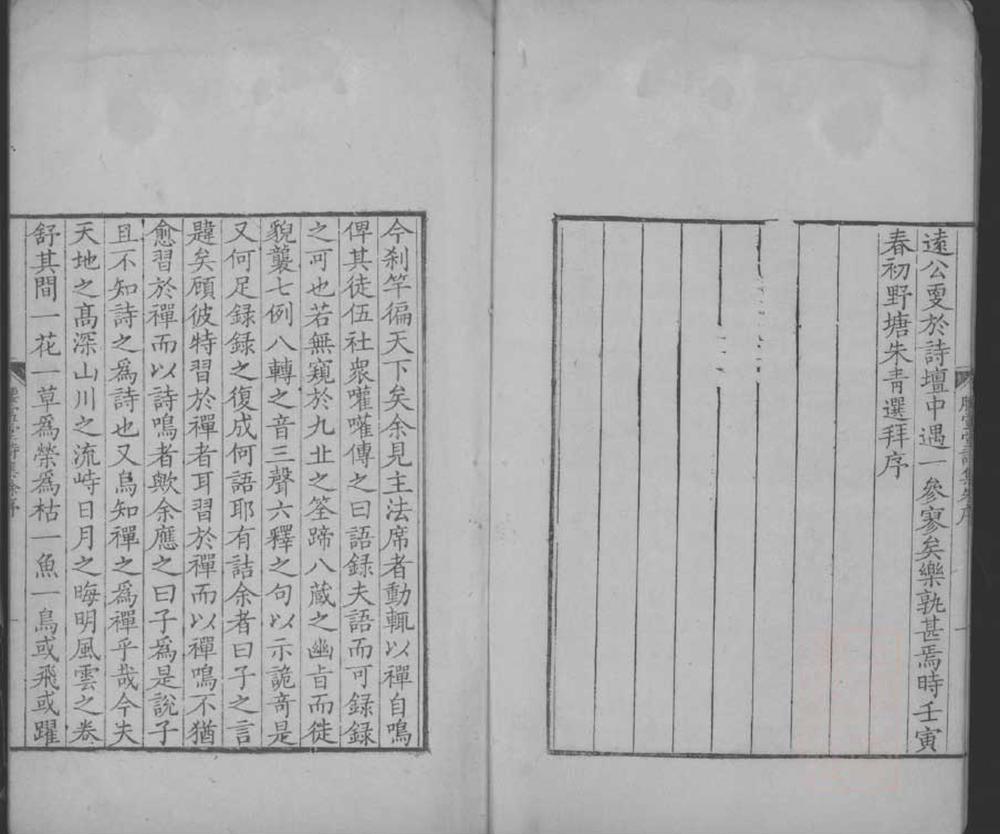 遠公更於詩壇中遇一參寥矣樂孰甚焉時壬寅
春初野塘朱青選拜序
今刹竿徧天下矣余見主法席者動輒以禪自鳴
俾其徒伍社衆嚾嚾傳之曰語録夫語而可録録
之可也若無窺於九北之筌蹄八蔵之幽旨而徒
貌襲七例八轉之音三聲六釋之句以示詭竒是
又何足録録之復成何語耶有詰余者曰子之言
韙矣顧彼特習於禪者耳習於禪而以禪鳴不猶
愈習於禪而以詩鳴者歟余應之曰子爲是說子
且不知詩之爲詩也又烏知禪之爲禪乎哉今夫
天地之髙深山川之流峙日月之晦明風雲之卷
舒其間一花一草爲榮爲枯一魚一鳥或飛或躍